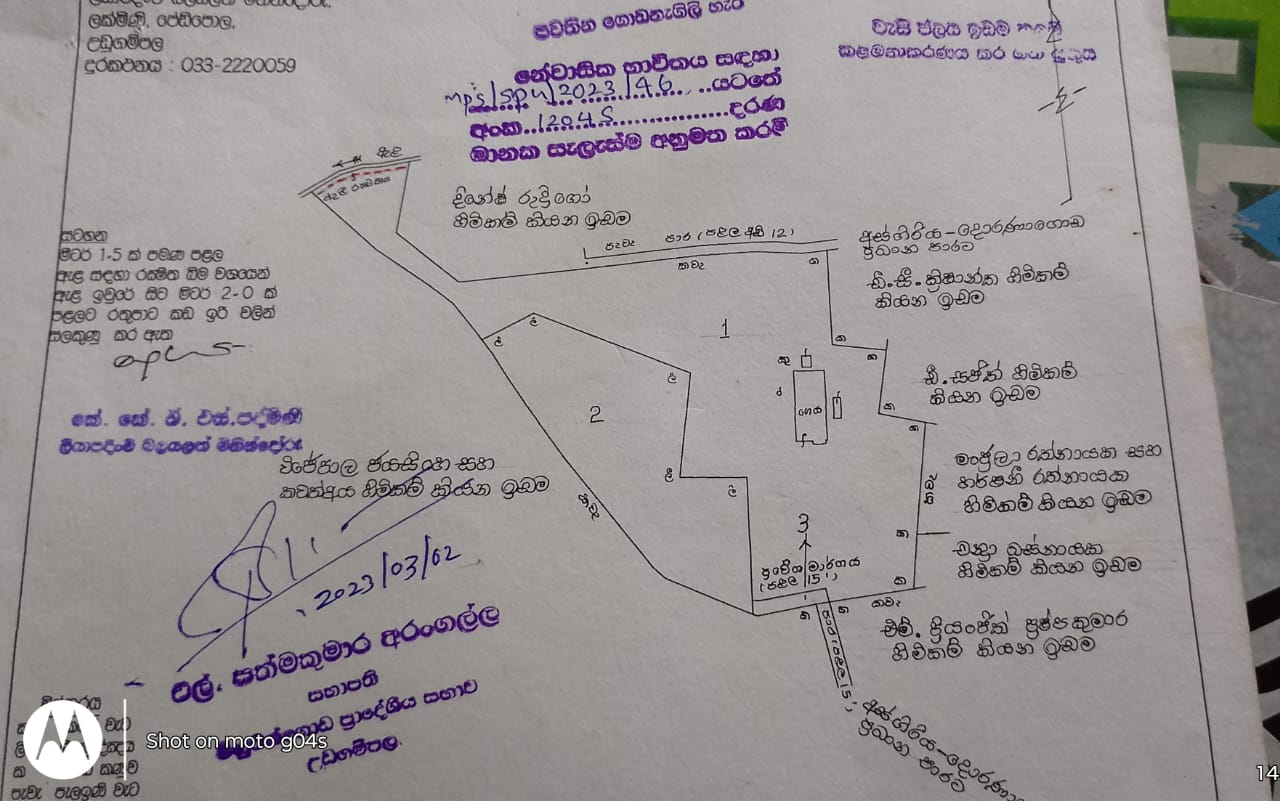 ලක්මිණි, පේඩිපොල,
උඩුගම්පල
දුරකථනය : 033-2220059
පවතින ගොඩනැගිලි හැර
නේවාසික භාවිතය සඳහා
mps/spu/2023/46 යටතේ
අංක 12045 දරණ
මානක සැලැස්ම අනුමත කරමි
වැසි ජලය ඉඩම තුළ
කළමනාකරණය කර
ඇළ
දිනේෂ් රුද්‍රිගෝ
හිමිකම් කියන ඉඩම
පැවැ පාර (පළල අඩි 12)
කවැ
අස්ගිරිය-දොරණාගොඩ
ප්‍රධාන පාරට
ඩී.සී. ක්‍රිශාන්ත හිමිකම්
කියන ඉඩම
සටහන
මීටර් 1-5 ක් පමණ පළල
ඇළ සඳහා රක්ෂිත බිම් වශයෙන්
ඇළ ඉවුරේ සිට මීටර් 2-0 ක්
පළලට රතුපාට කඩ ඉරි වලින්
සලකුණු කර ඇත
කේ. කේ. ඒ. එස්. පද්මිණී
ලියාපදිංචි බලයලත් මිනින්දෝරු
1
2
3
ගෙය
ඩී. සජිත් හිමිකම්
කියන ඉඩම
මංජුලා රත්නායක සහ
හර්ෂනී රත්නායක
හිමිකම් කියන ඉඩම
චන්ද්‍රා බස්නායක
හිමිකම් කියන ඉඩම
විජේපාල ජයසිංහ සහ
හිමිකම් කියන ඉඩම
ප්‍රවේශ මාර්ගය
(පළල 15')
කවැ
එම්. ප්‍රියංජිත් පුෂ්පකුමාර
හිමිකම් කියන ඉඩම
2023/03/02
එල්. සත්මකුමාර අරංගල්ල
සභාපති
ප්‍රාදේශීය සභාව
උඩුගම්පල.
අස්ගිරිය-දොරණා
ප්‍රධාන පාරට
පැවැ පැලඉණි වැට
Shot on moto g04s
14